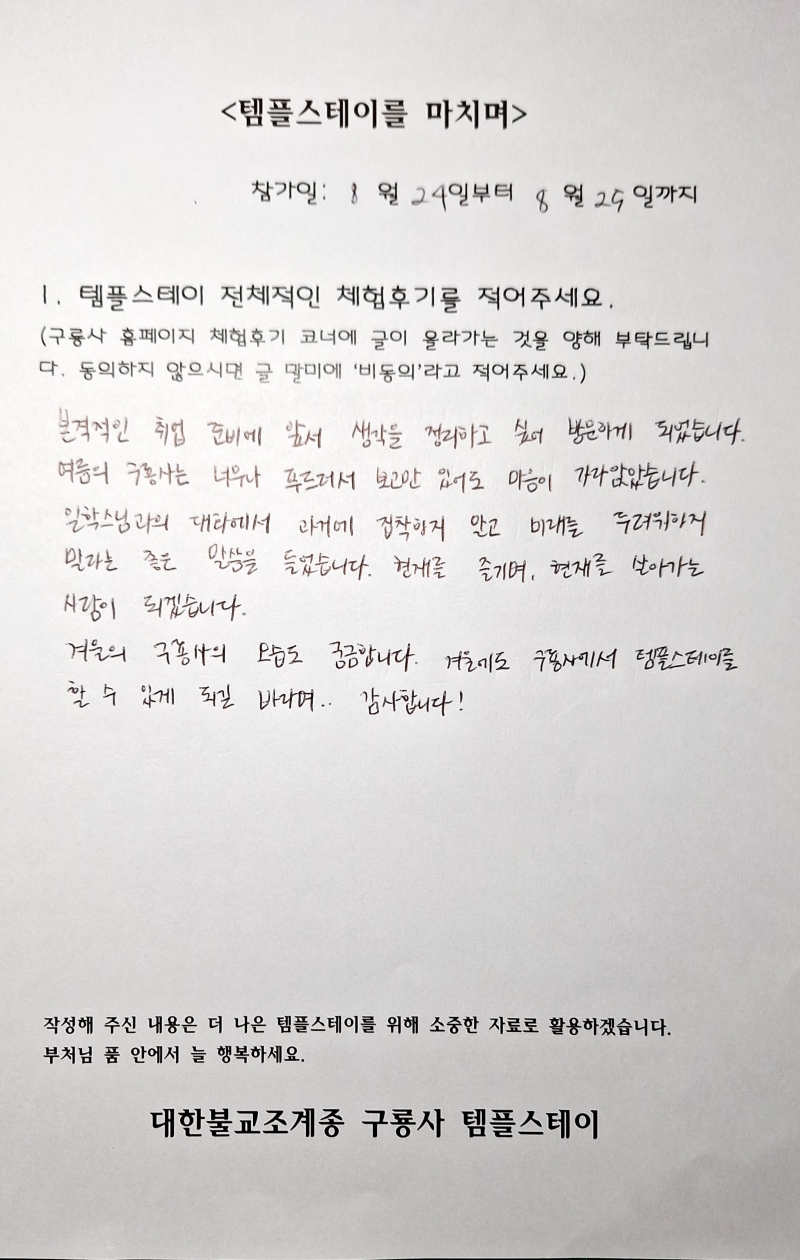 <템플스테이를 마치며>
참가일: 8 월 24일부터 8 월 25일까지
1. 템플스테이 전체적인 체험후기를 적어주세요.
(구룡사 홈페이지 체험후기 코너에 글이 올라가는 것을 양해 부탁드립니
다. 동의하지 않으시면 글 말미에 '비동의'라고 적어주세요.)
본격적인 취업 준비에 앞서 생각을 정리하고 싶어 방문하게 되었습니다.
여름의 구룡사는 너무나 푸르러서 보고만 있어도 마음이 가라앉았습니다.
일학스님과의 대화에서 과거에 집착하지 말고 미래를 두려워하지
말라는 좋은 말씀을 들었습니다. 현재를 즐기며, 현재를 살아가는
사람이 되겠습니다.
겨울의 구룡사의 모습도 궁금합니다. 겨울에도 구룡사에서 템플스테이를
할 수 있게 되길 바라며.. 감사합니다!
작성해 주신 내용은 더 나은 템플스테이를 위해 소중한 자료로 활용하겠습니다.
부처님 품 안에서 늘 행복하세요.
대한불교조계종 구룡사 템플스테이